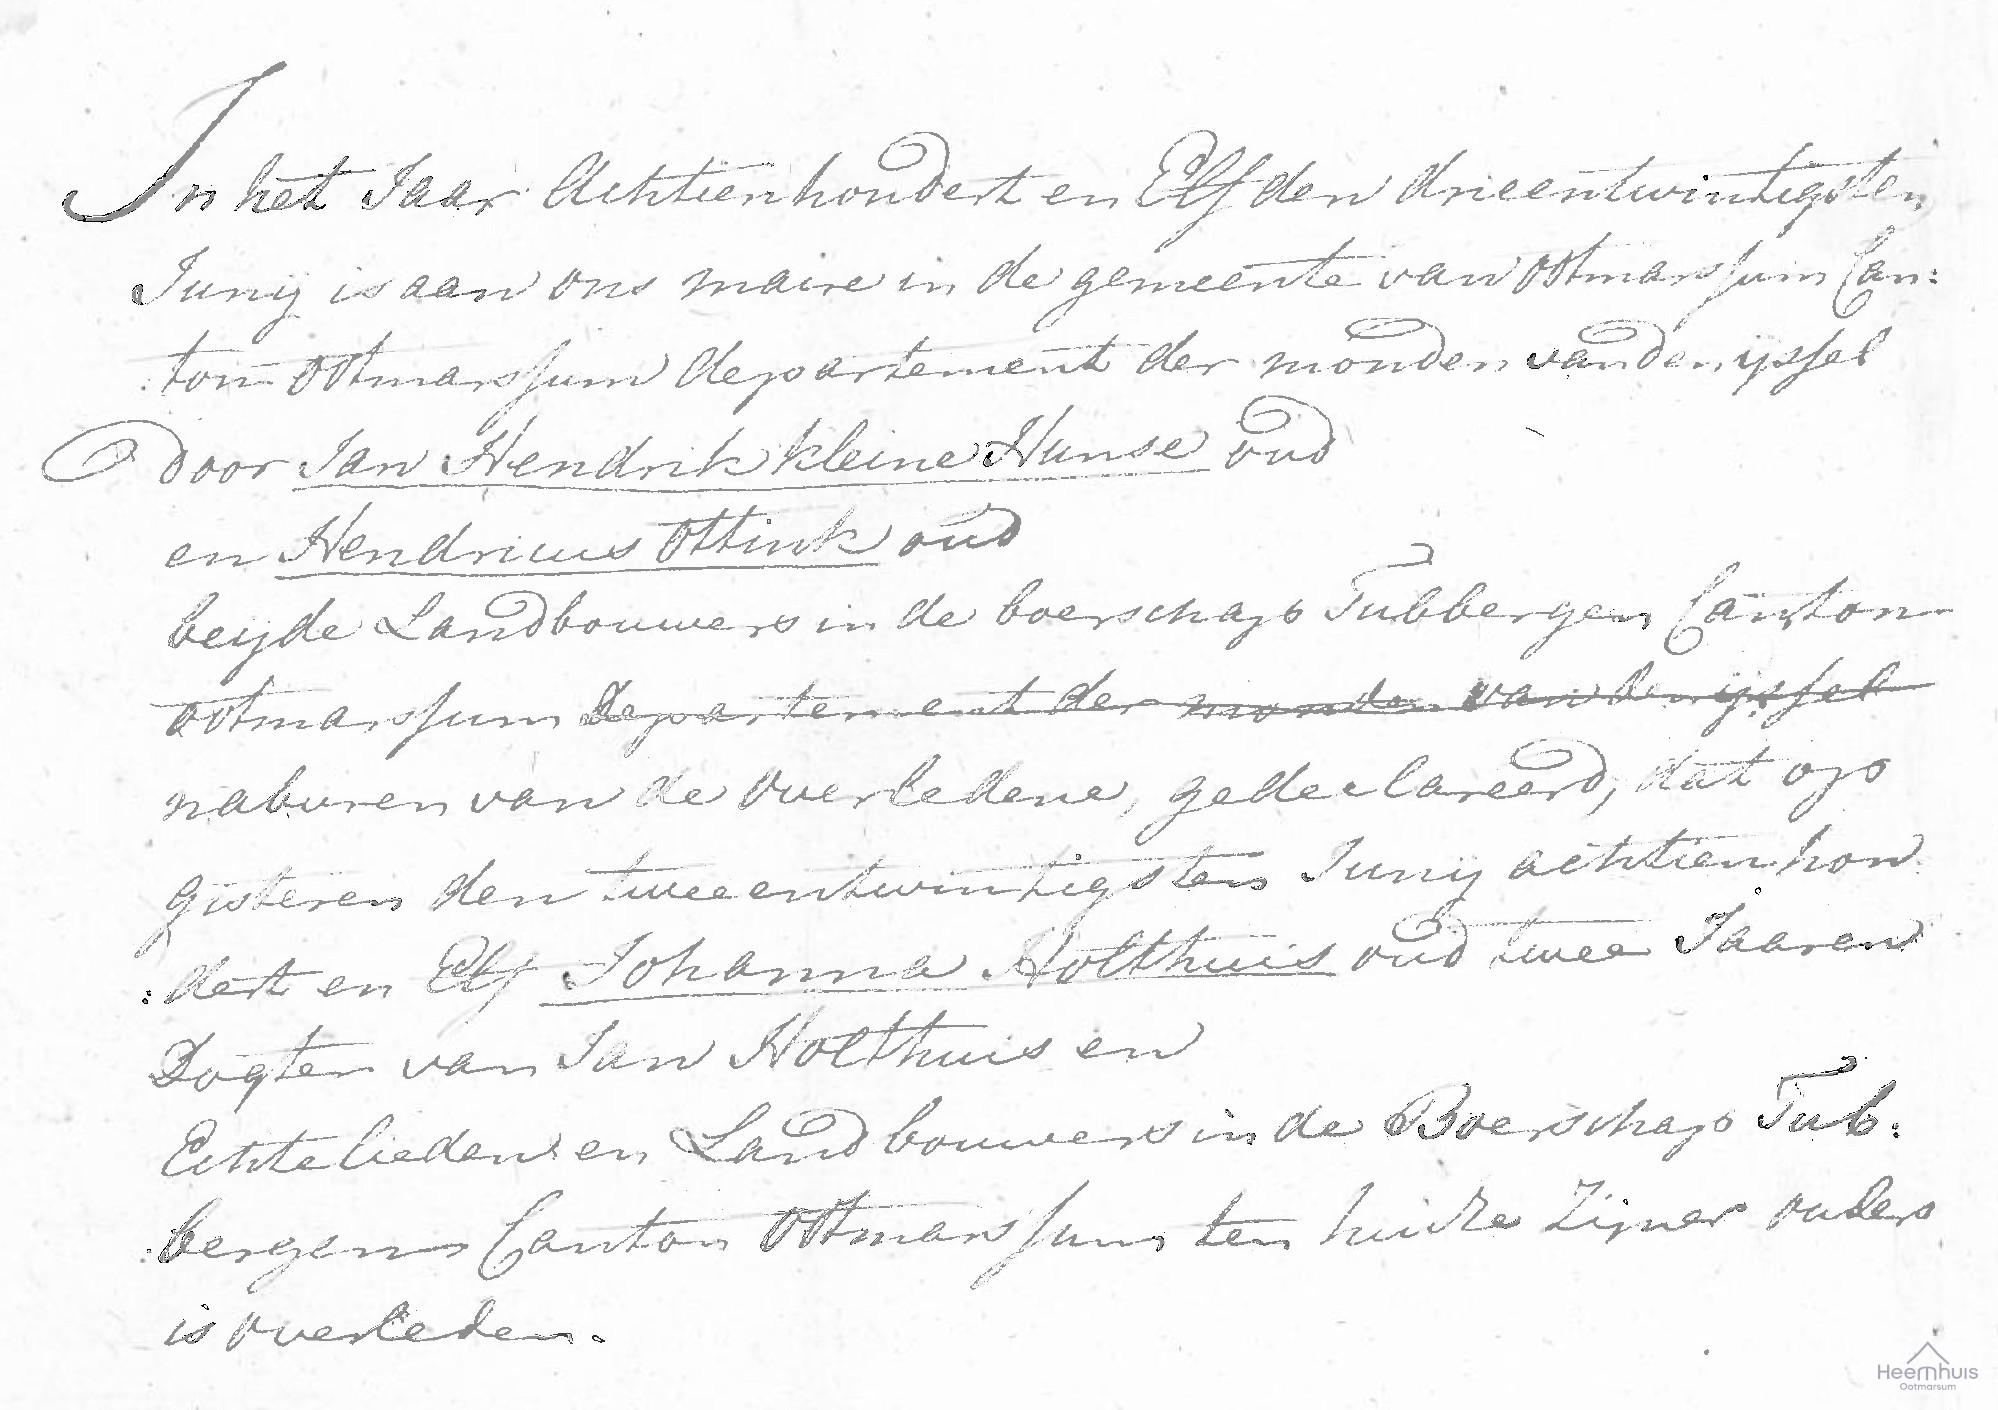 In het Jaar Achtienhondert en Elf den drieentwintigsten
Junij is aan ons maire in de gemeente van Ootmarssum Can:
:ton Ootmarssum departement der monden van den ijssel
Door Jan Hendrik kleine Hunse oud
en Hendricus Ottink oud
beijde Landbouwers in de boerschap Tubbergen Canton
Ootmarssum Departement der monden van den ijssel
naburen van de overledene, gedeclareerd, dat op
gisteren den tweeentwintigsten Junij achtienhon
:dert en Elf Johanna Holthuis oud twee Jaaren
Dogter van Jan Holthuis en
Echtelieden en Landbouwers in de Boerschap Tub:
:bergen Canton Ootmarssum ten huize Zijner ouders
is overleden.
Heemhuis
Ootmarsum